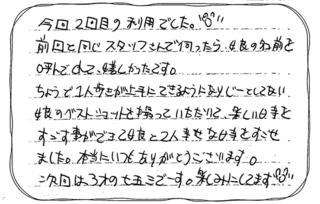 今回2回目の利用でした。
前回と同じスタッフさんで伺ったら、娘の名前を
呼んでくれて、嬉しかったです。
ちょうど1人歩きが上手にできるようになりじーとしてない
娘のベストショットを撮っていただいて、楽しい時を
すごす事ができて娘と2人幸せな日をすごせ
ました。本当にいつもありがとうございます。
次回は3才の七五三です。楽しみにしてます